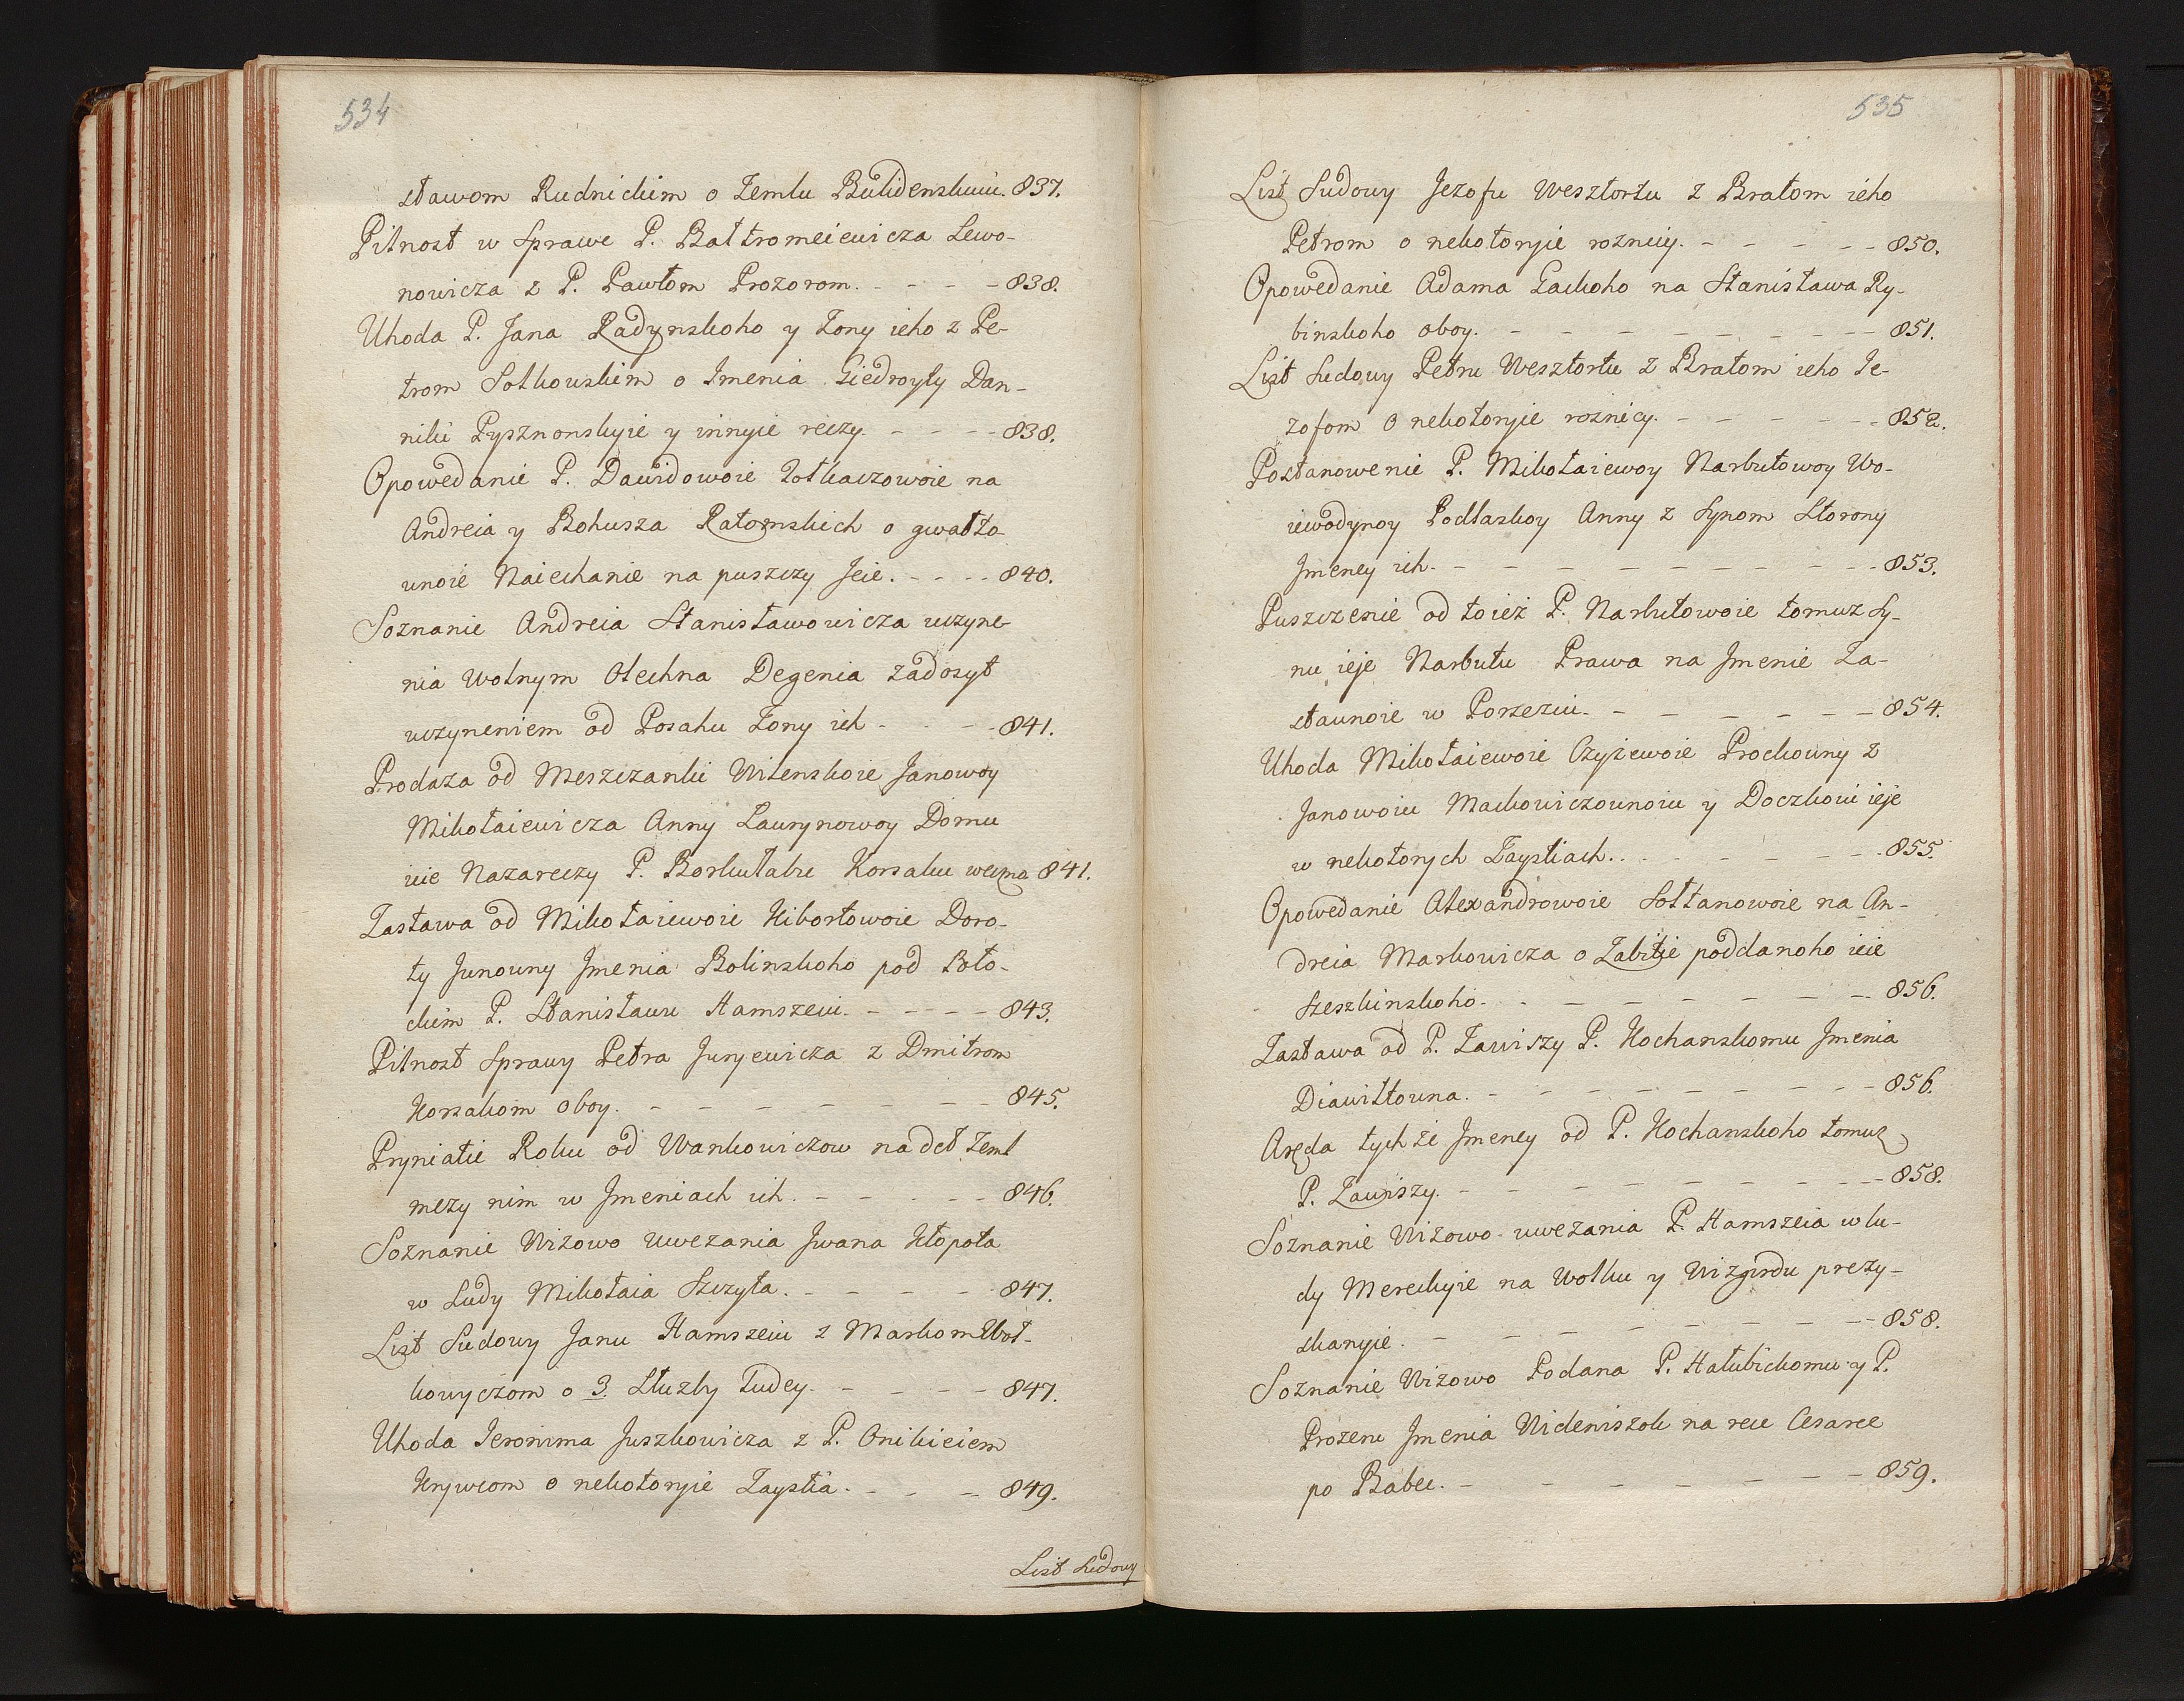 534
sławom Rudnickim o Zemlu Bulidenskuiu. 837.
Pilnost w Sprawe P. Bałtromeiewicza Lewo-
nowicza z P. Pawłom Prozorom. - - - - 838.
Uhoda P. Jana Radynskoho y Żony ieho z Pe-
trom Sołkowskim o Imenia Giedroyty Dan-
niki Pysznonskyie y innyie reczy. - - - - 838.
Opowedanie P. Dawidowoie Zołkaczowoie na
Andreia y Bohusza Ratomskich o gwałto-
wnoie Naiechanie na puszczy Jeie. - - - - 840.
Soznanie Andreia Stanisławowicza uczyne-
nia Wolnym Olechna Degenia zadosyt
uczyneniem od Posahu Żony ich - - - - 841.
Prodaża od Meszczanki Wilenskoie Janowoy
Mikołaiewicza Anny Laurynowoy Domu
ieie Nazareczy P. Borkułabu Korsaku weczno 841.
Zastawa od Mikołaiewoie Kibortowoie Doro-
ty Junowny Imenia Bolinskoho pod Poło-
ckim P. Stanisławu Hamszeiu. - - - - - 843.
Pilnost Sprawy Petra Juryewicza z Dmitrom
Korsakom oboy. - - - - - - - 845.
Pryniatie Roku od Wankowiczow na deł Zeml
mezy nim w Imeniach ich. - - - - - 846.
Soznanie Wiżowo uwezania Iwana Kłopota
w Ludy Mikołaia Szczyta. - - - - - 847.
List Sudowy Janu Hamszeiu z Markom Woł-
kowyczom o 3. Służby Ludey. - - - - - 847.
Uhoda Jeronima Juszkowicza z P. Onikieiem
Krywcom o nekotoryie Zaystia. - - - - 849.
List Sudowy
535
List Sudowy Jezofu Wesztortu z Bratom ieho
Petrom o nekotoryie roznicy. - - - - - - 850.
Opowedanie Adama Gackoho na Stanisława Ry-
binskoho oboy. - - - - - - - - - 851.
List Sudowy Petru Wesztortu z Bratom ieho Je-
zofom o nekotoryie roznicy. - - - - - - 852.
Postanowenie P. Mikołaiewoy Narbutowoy Wo-
iewodynoy Podlaskoy Anny z Synom Storony
Imeney ich. - - - - - - - - - - - 853.
Puszczenie od toież P. Narbutowoie tomuż Sy-
nu ieje Narbutu Prawa na Imenie Za-
sławnoie w Porzeziu. - - - - - - - - 854.
Uhoda Mikołaiewoie Czyżewoie Prockowny z
Janowoiu Mackowiczownoiu y Doczkoiu ieje
w nekotorych Zaystiach. . - - - - - - 855.
Opowedanie Alexandrowoie Sołtanowoie na An-
dreia Markowicza o Zabitje poddanoho ieie
Szeszkinskoho. - - - - - - - - - 856.
Zastawa od P. Zawiszy P. Kochanskomu Imenia
Diawiłtowna. - - - - - - - - - 856.
Aręda tych że Imeney od P. Kochanskoho tomuż
P. Zawiszy. - - - - - - - - - - 858.
Soznanie Wiżowo uwezania P. Hamszeia w lu-
dy Mereckyie na Wołku y Wizgirdu prezy-
skanyie. - - - - - - - - - - - 858.
Soznanie Wiżowo Podana P. Hałubickomu y P.
Prozeru Imenia Wideniszok na reu Cesarce
po Babce. - - - - - - - - - 859.